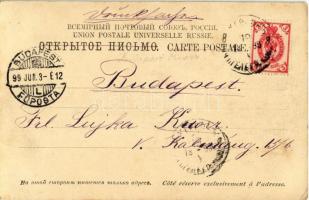 Drucksache
ВСЕМІРНЫЙ ПОЧТОВЫЙ СОЮЗЪ. РОССІЯ.
UNION POSTALE UNIVERSELLE RUSSIE.
ОТКРЫТОЕ ПИСЬМО. CARTE POSTALE.
BUDAPEST
99 JUN. 3 - E 12
L
FŐPOSTA
Budapest.
Frl. Lujka
V.
На этой сторонѣ пишется только адресъ.
Côté réservé exclusivement à l'adresse.